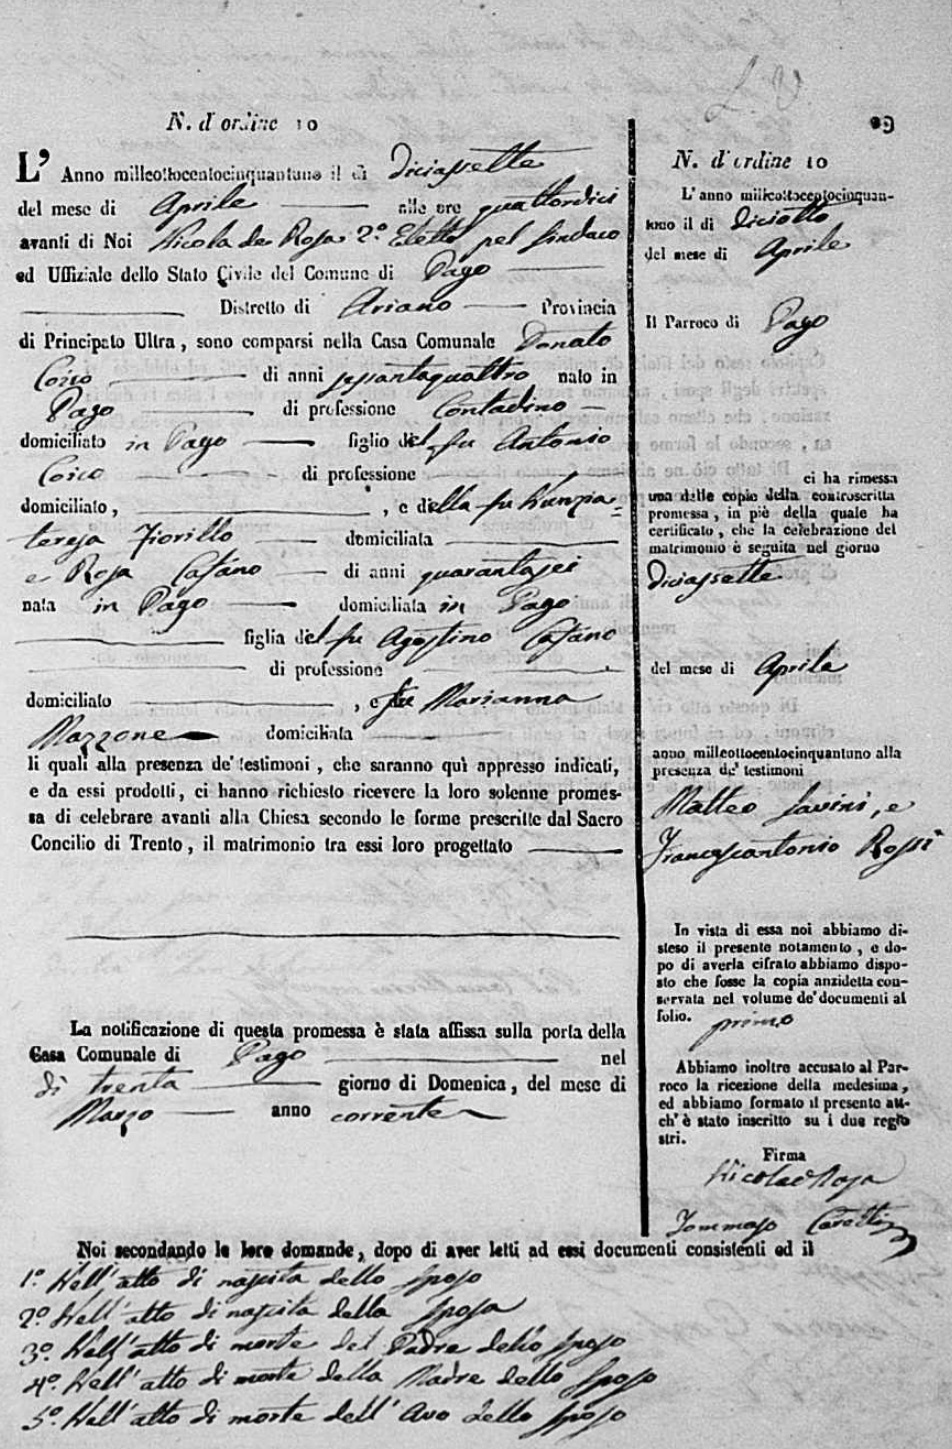 L. V.
N. d'ordine 10
99
L' Anno milleottocentocinquantuno il dì diciassette
del mese di Aprile alle ore quattordici
avanti di Noi Nicola de Rosa 2º Eletto pel Sindaco
ed Uffiziale dello Stato Civile del Comune di Pago
Distretto di Ariano Provincia
di Principato Ultra, sono comparsi nella Casa Comunale Donato
Coico di anni sessantaquattro nato in
Pago di professione Contadino
domiciliato in Pago figlio del fu Antonio
Coico di professione
domiciliato, , e della fu Nunzia=
teresa Fiorillo domiciliata
e Rosa Catáno di anni quarantasei
nata in Pago domiciliata in Pago
figlia del fu Agostino Catáno
di professione
domiciliato , e fu Marianna
Mazzone domiciliata
li quali alla presenza de' testimoni, che saranno quì appresso indicati,
e da essi prodotti, ci hanno richiesto ricevere la loro solenne promes-
sa di celebrare avanti alla Chiesa secondo le forme prescritte dal Sacro
Concilio di Trento, il matrimonio tra essi loro progettato
La notificazione di questa promessa è stata affissa sulla porta della
Casa Comunale di Pago nel
dì trenta giorno di Domenica, del mese di
Marzo anno corrente
Noi secondando le loro domande, dopo di aver letti ad essi documenti consistenti ed il
1º. Nell'atto di nascita dello sposo
2º. Nell'atto di nascita della sposa
3º. Nell'atto di morte del Padre dello sposo
4º. Nell'atto di morte della Madre dello sposo
5º. Nell'atto di morte dell'Avo dello sposo
N. d'ordine 10
L'anno milleottocentocinquan-
tuno il di diciotto
del mese di Aprile
Il Parroco di Pago
ci ha rimessa
una delle copie della controscritta
promessa, in piè della quale ha
certificato, che la celebrazione del
matrimonio è seguita nel giorno
diciassette
del mese di Aprile
anno milleottocentocinquantuno alla
presenza de' testimoni
Matteo Savini, e
Francescantonio Rossi
In vista di essa noi abbiamo di-
steso il presente notamento, e do-
po di averla cifrato abbiamo dispo-
sto che fosse la copia anzidetta con-
servata nel volume de' documenti al
folio. primo
Abbiamo inoltre accusato al Par-
roco la ricezione della medesima,
ed abbiamo formato il presente att-
ch'è stato inscritto su i due regio
stri.
Firma
Nicola de Rosa
Tommaso